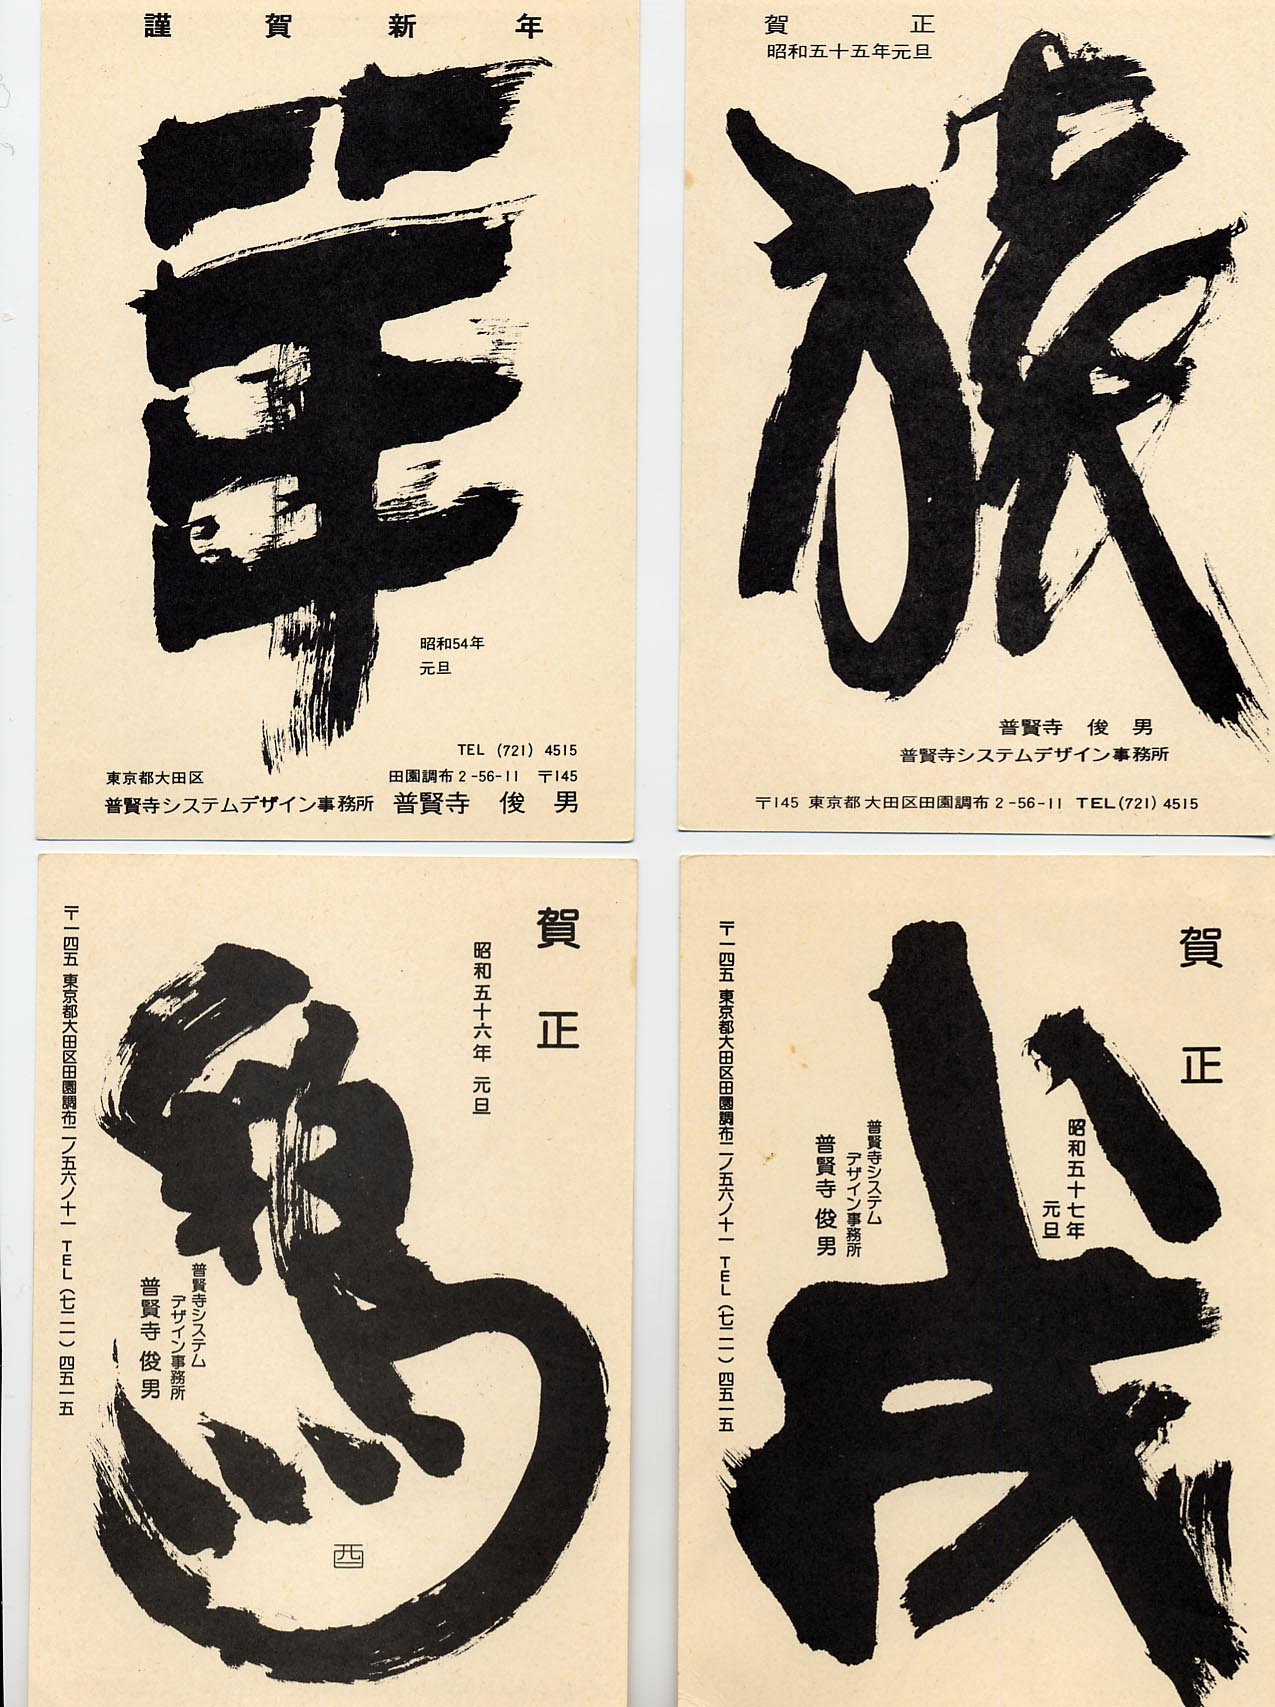 謹賀新年
羊
昭和54年
元旦
TEL (721) 4515
東京都大田区 田園調布2-56-11 〒145
普賢寺システムデザイン事務所 普賢寺 俊 男
賀 正
昭和五十五年元旦
猿
普賢寺 俊 男
普賢寺システムデザイン事務所
〒145 東京都大田区田園調布2-56-11 TEL(721)4515
賀正
昭和五十六年 元旦
酉
普賢寺システム
デザイン事務所
普賢寺俊男
〒一四五 東京都大田区田園調布二ノ五六ノ十一 TEL(七二一)四五一五
賀正
昭和五十七年
元旦
戌
普賢寺システム
デザイン事務所
普賢寺俊男
〒一四五 東京都大田区田園調布二ノ五六ノ十一 TEL(七二一)四五一五